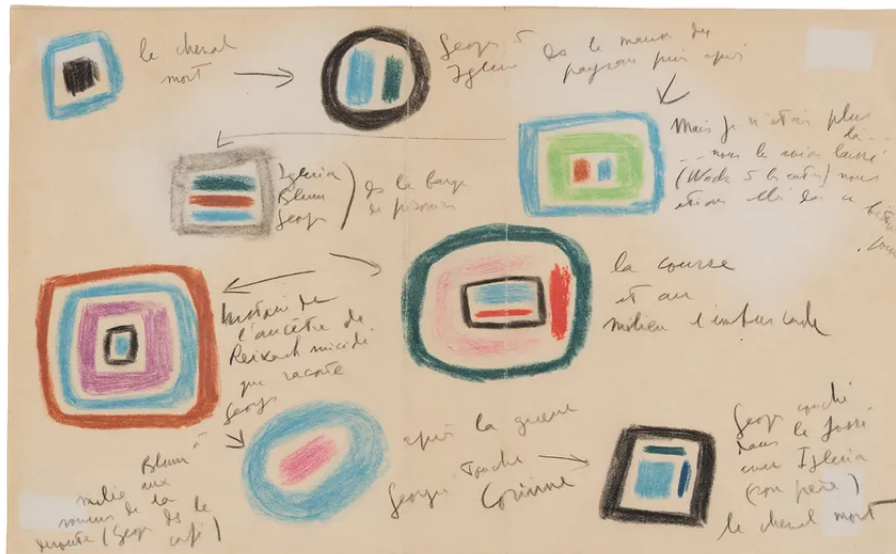 le cheval
mort
Georges
Iglésia ds la maison des
paysans puis après
Mais je n'étais plus
là
... nous les avions laissé
(Wack 5 minutes) nous
étions
Iglésia
Blum
Georges
ds la barge
de prisonniers
la course
et au
milieu l'embuscade
histoire de
l'ancêtre de
Reixach suicidé
que raconte
Georges
à
Blum
mêlée aux
rumeurs de la
déroute (Georges ds le
café)
après la guerre
Georges Touche
Corinne
Georges couché
dans le fossé
avec Iglésia
(son père)
le cheval mort